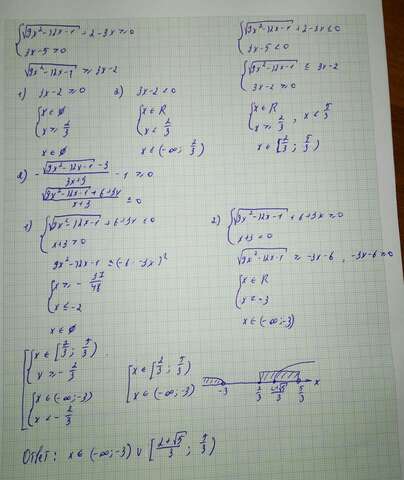 { √(9x²-12x-1) + 2-3x ≥ 0
3x-5 ≥ 0
√(9x²-12x-1) ≥ 3x-2
1) 3x-2 ≥ 0
{ x ∈ ∅
x ≥ 2/3
x ∈ ∅
2) 3x-2 < 0
{ x ∈ R
x < 2/3
x ∈ (-∞; 2/3)
{ √(9x²-12x-1) + 2-3x ≤ 0
3x-5 < 0
{ √(9x²-12x-1) ≤ 3x-2
3x-2 ≥ 0
{ x ∈ R
x ≥ 2/3 , x < 5/3
x ∈ [2/3; 5/3)
2) - (√(9x²-12x-1) - 3)/(3x+9) - 1 ≥ 0
(√(9x²-12x-1) + 6+3x)/(x+3) ≤ 0
1) { √(9x²-12x-1) + 6+3x ≤ 0
x+3 > 0
9x²-12x-1 ≤ (-6-3x)²
{ x ≥ - 37/48
x ≤ -2
x ∈ ∅
2) { √(9x²-12x-1) + 6+3x ≥ 0
x+3 < 0
√(9x²-12x-1) ≥ -3x-6 , -3x-6 ≥ 0
{ x ∈ R
x < -3
x ∈ (-∞; -3)
[ { x ∈ [2/3; 5/3)
x ≥ - 2/3
{ x ∈ (-∞; -3)
x < - 2/3
[ x ∈ [2/3; 5/3)
x ∈ (-∞; -3)
-3 2/3 (2+√5)/3 5/3 x
Ответ: x ∈ (-∞; -3) ∪ [(2+√5)/3; 5/3)